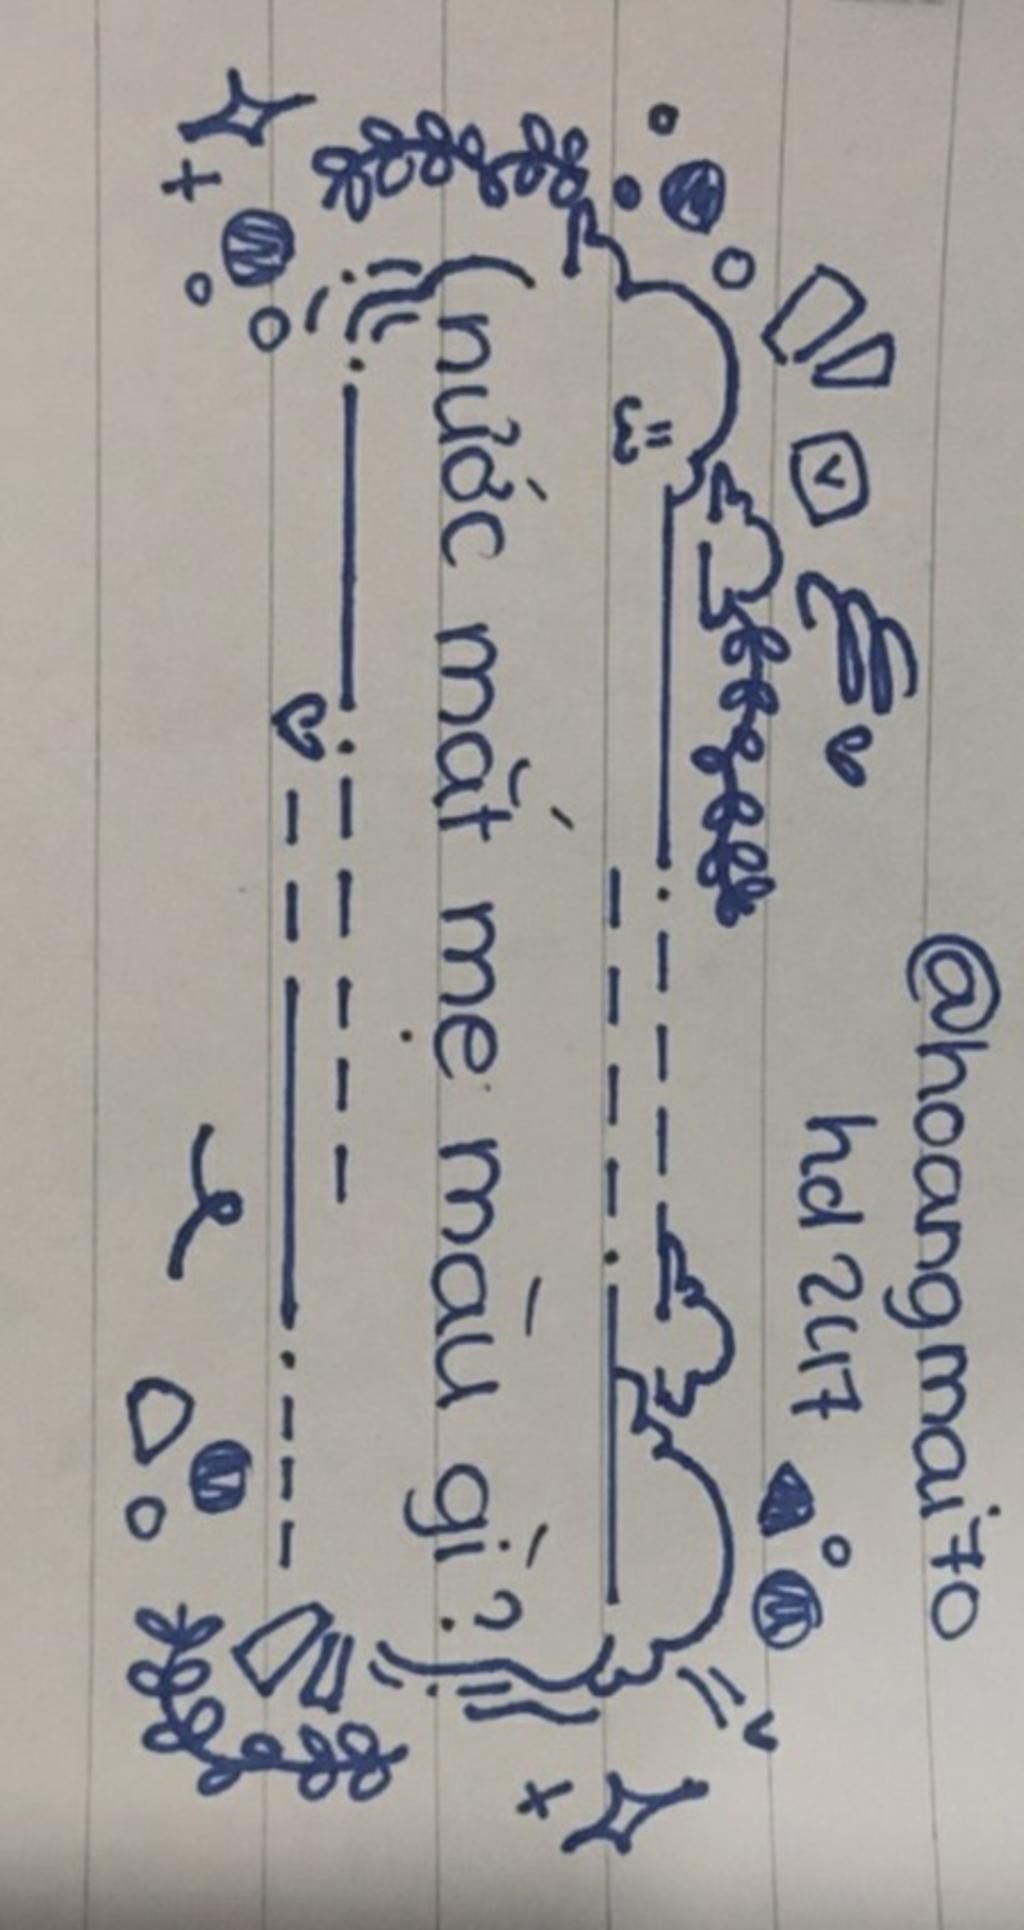 @hoangmai70
hd 247
nước mắt mẹ màu gì?